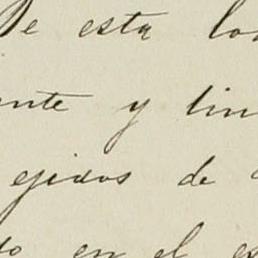 De esta lo
ente y lin
ejidos de
do en el es